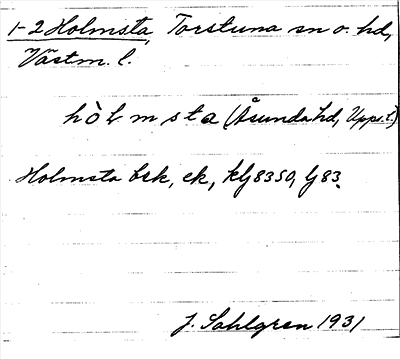 1-2 Holmsta, Torstuna sn o. hd,
Västm. l.
hòlmsta (Åsunda hd, Upps. l.)
Holmsta bsk, ek, klj 8350, lj 83.
J. Sahlgren 1931